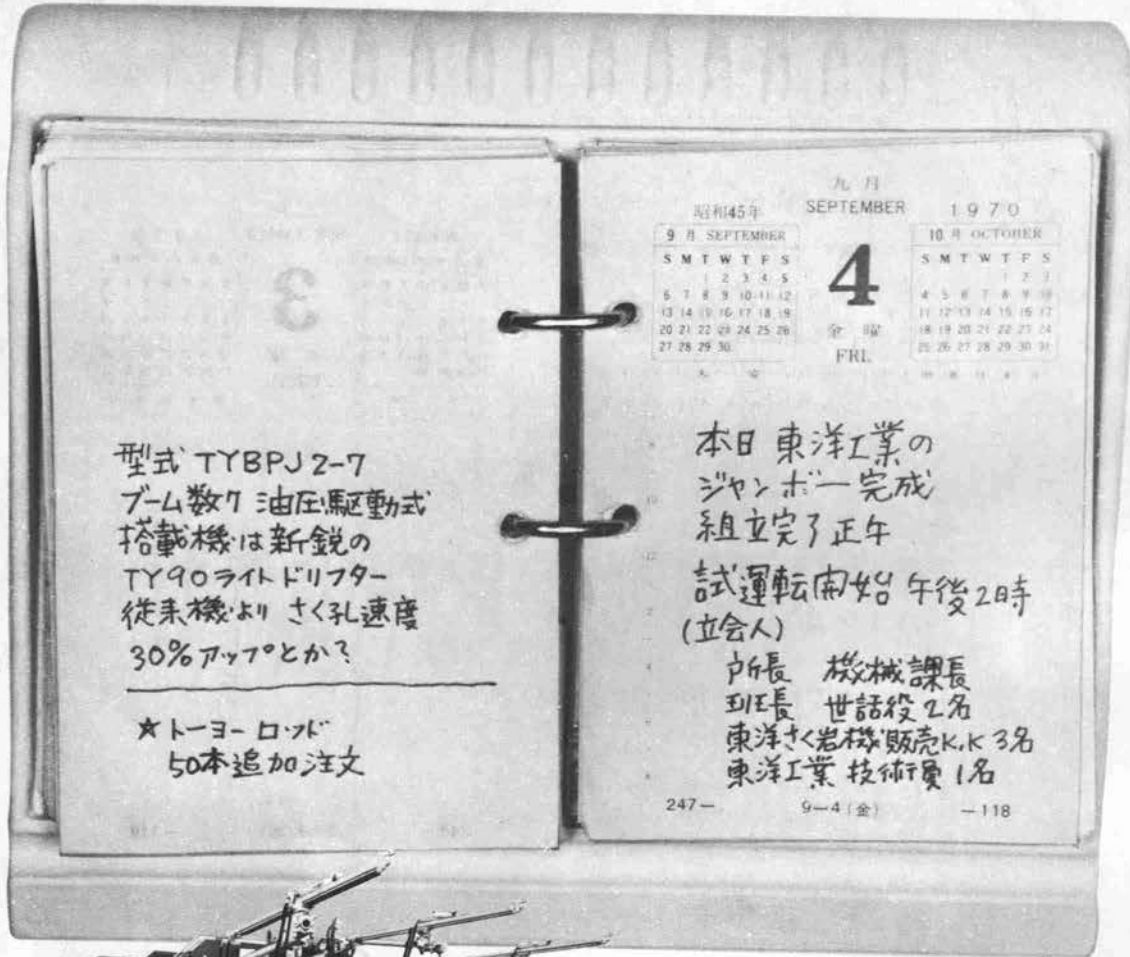 型式 TYBPJ 2-7
ブーム数7 油圧駆動式
搭載機は新鋭の
TY90ライトドリフター
従来機より さく孔速度
30%アップとか?
☆トーヨーロッド
50本追加注文
九月
SEPTEMBER
昭和45年
1970
9月 SEPTEMBER
S M T W T F S
1 2 3 4 5
6 7 8 9 10 11 12
13 14 15 16 17 18 19
20 21 22 23 24 25 26
27 28 29 30
4
金曜
FRI.
10月 OCTOBER
S M T W T F S
1 2 3
4 5 6 7 8 9 10
11 12 13 14 15 16 17
18 19 20 21 22 23 24
25 26 27 28 29 30 31
本日 東洋工業の
ジャンボー完成
組立完了正午
試運転開始 午後2時
(立会人)
所長 機械課長
班長 世話役2名
東洋さく岩機販売K.K 3名
東洋工業 技術員 1名
247— 9—4(金) —118